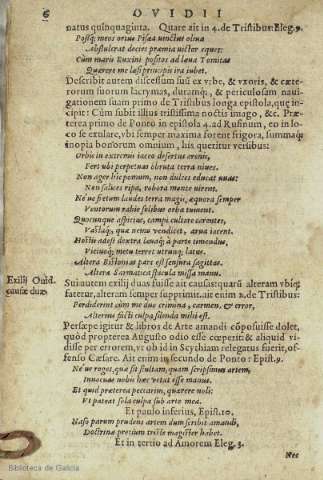 6 OVIDII
natus quinquaginta. Quare ait in 4. de Tristibus: Eleg. 9.
Postq; meos ortus Pisæa vinctus oliua
Abstulerat decies præmia victor eques:
Cùm maris Euxini positos ad læua Tomitas
Quærere me læsi principis ira iubet.
Describit autem discessum suũ ex vrbe, & vxoris, & cæte-
rorum suorum lacrymas, duramq;, & periculosam naui-
gationem suam primo de Tristibus longa epistola, quę in-
cipit: Cùm subit illius tristissima noctis imago, &c. Præ-
terea primo de Ponto in epistola 4. ad Rufinum, eo in lo-
co se exulare, vbi semper maxima forent frigora, summaq;
inopia bonorum omnium, his queritur versibus:
Orbis in extremi iaceo desertus arenis,
Fert vbi perpetuas obruta terra niues.
Non ager hîc pomum, non dulces educat vuas:
Non salices ripa, robora monte virent.
Ne'ue fretum laudes terra magis, æquora semper
Ventorum rabie solibus orba tument.
Quocunque aspicias, campi cultore carentes,
Vastaq;, quæ nemo vendicet, arua iacent.
Hostis adest dextra læuaq; à parte timendus,
Vicinoq; metu terret utrunq; latus.
Altera Bistonias pars est sensura sagittas.
Altera Sarmatica spicula missa manu.
Exilij Ouid.
causæ duæ.
Sui autem exilij duas fuisse ait causas: quarũ alteram vbiq;
fatetur, alteram semper supprimit. ait enim 2. de Tristibus:
Perdiderint cùm me duo crimina, carmen, & error,
Alterius facti culpa silenda mihi est.
Persæpe igitur & libros de Arte amandi cõposuisse dolet,
quòd propterea Augusto odio esse cœperit: & aliquid vi-
disse per errorem, vt ob id in Scythiam relegatus fuerit, of-
fenso Cæsare. Ait enim in secundo de Ponto: Epist. 9.
Ne'ue roges, quæ sit stultam, quam scripsimus artem,
Innocuas nobis hæc vetat esse manus.
Et quid præterea peccarim, quærere noli:
Vt pateat sola culpa sub arte mea.
Et paulo inferius, Epist. 10.
Naso parum prudens artem dum scribit amandi,
Doctrinæ pretium triste magister habet.
Et in tertio ad Amorem Eleg. 3.
Nec
Biblioteca de Galicia